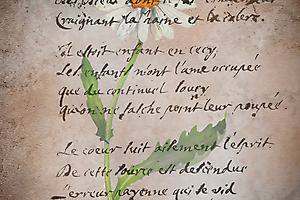 Craignant la haine et la colere.
Il estoit enfant en cecy,
Les enfants n'ont l'ame occupée
que du continuel soucy
qu'on ne fasche point leur poupée.
Le coeur suit aisement l'esprit.
De cette souris est
L'erreur payenne qui se vid